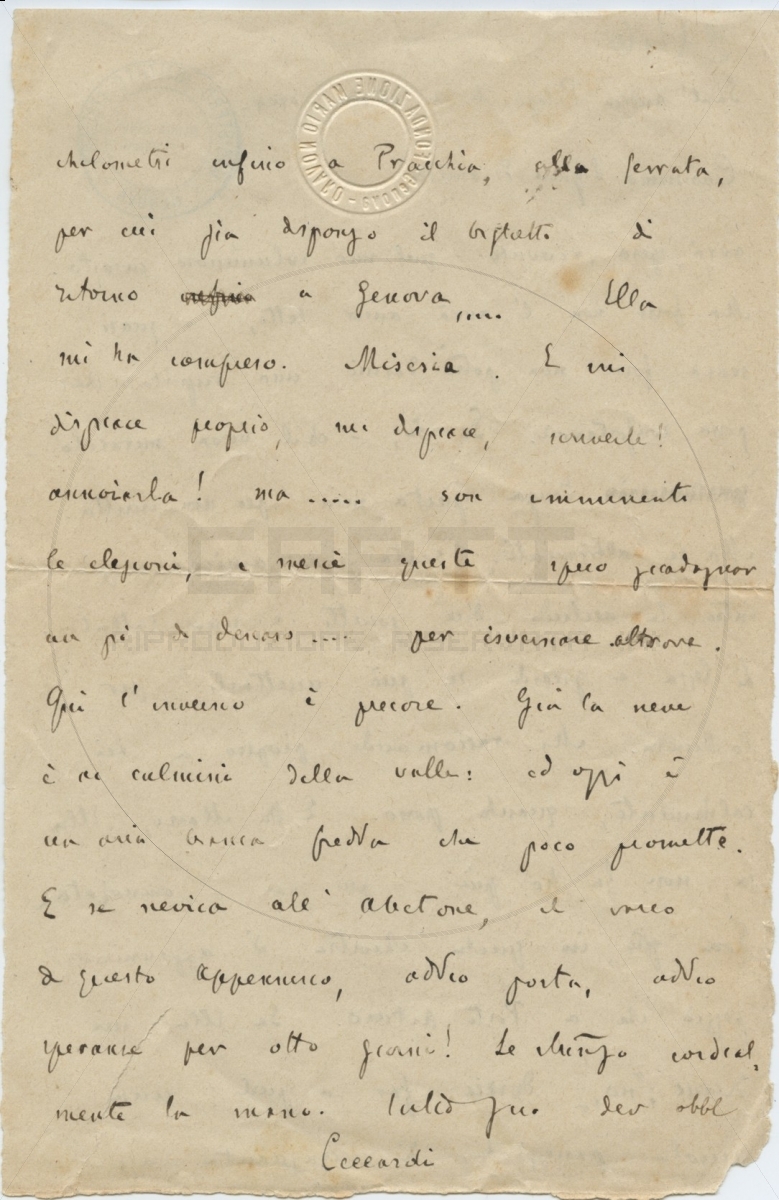 FONDAZIONE MARIO NOVARO - GENOVA
chilometri infino a Pracchia, alla ferrata,
per cui già dispongo il biglietto di
ritorno a Genova..... Ella
mi ha compreso. Miseria. E mi
dispiace proprio, mi dispiace, scriverle!
annoiarla! ma ..... son imminenti
le elezioni, e mercè queste spero guadagnar
un pò di denaro .... per isvernare altrove.
Qui l'inverno è precoce. Già la neve
è ai culmini della valle: ed oggi è
un aria bianca fredda che poco promette.
E se nevica all' Abetone, il varco
di questo appennino, addio posta, addio
speranze per otto giorni! Le stringo cordial,
mente la mano. suo dev obbl
Ceccardi